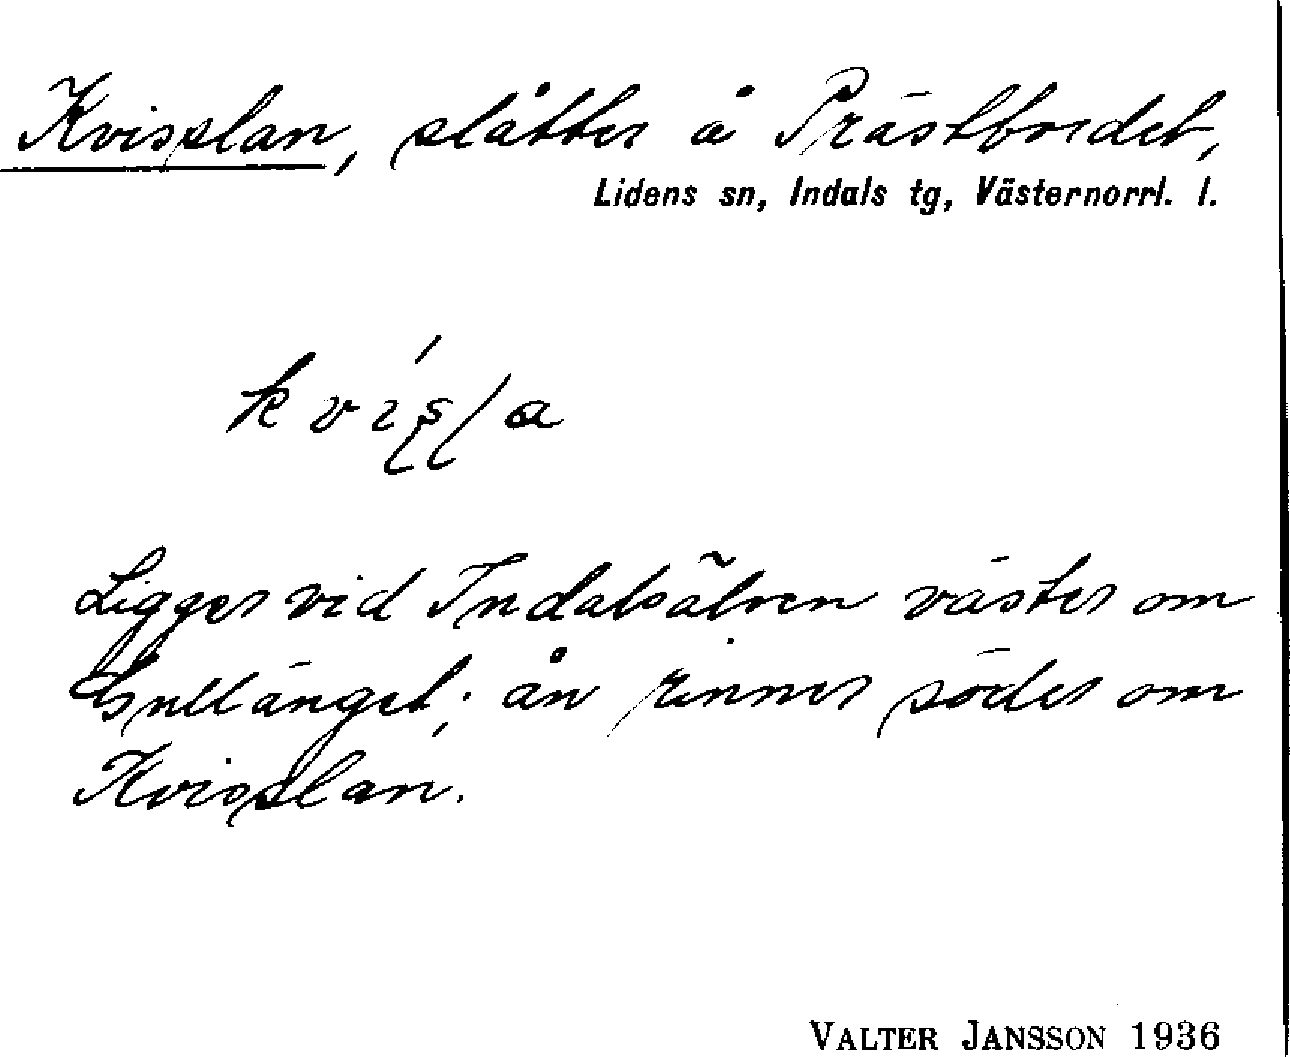 Kvisslan, slåtter å Prästbordet,
Lidens sn, Indals tg, Västernorrl. l.
Ligger vid Indalsälven väster om
Gulländget; ån rinner söder om
Kvisslan.
VALTER JANSSON 1936